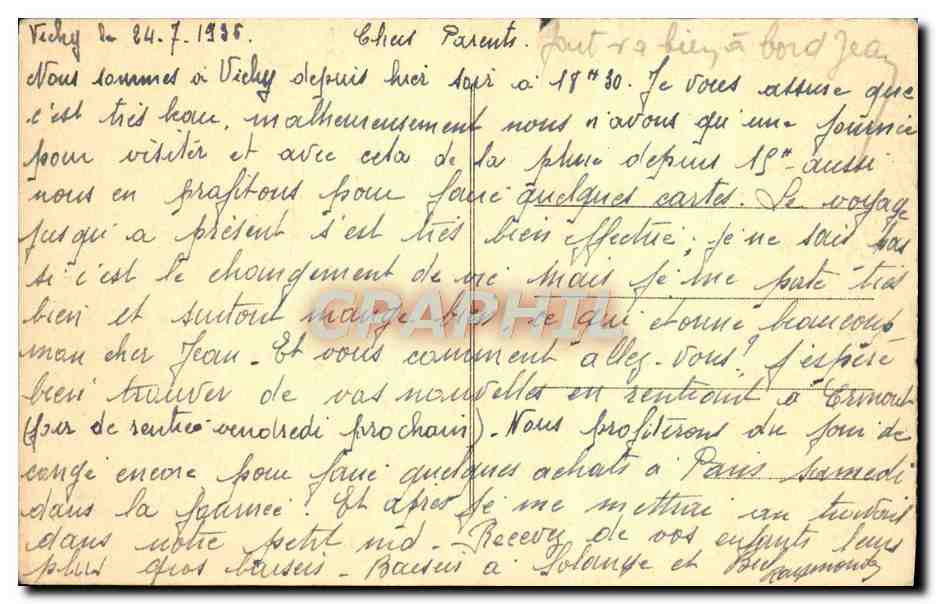 Vichy le 24.7.1935. Chers Parents. Tout va bien à bord Jean
Nous sommes à Vichy depuis hier soir à 18H30. Je vous assure que
c'est très beau, malheureusement nous n'avons qu'une journée
pour visiter et avec cela de la pluie depuis 15H aussi
nous en profitons pour faire quelques cartes. Le voyage
jusqu'à présent s'est très bien effectué, je ne sais pas
si c'est le changement de vie mais je me porte très
bien et surtout mange bien, ce qui étonne beaucoup
mon cher Jean - Et vous comment allez-vous? J'espère
bien trouver de vos nouvelles en rentrant à Ermont
(jour de rentrée vendredi prochain). Nous profiterons du jour de
congé encore pour faire quelques achats à Paris samedi
dans la journée! Et après je me mettrai au travail
dans notre petit nid - Recevez de vos enfants leurs
plus gros baisers - Baisers à Solange et Raymonde
CPAPHIL